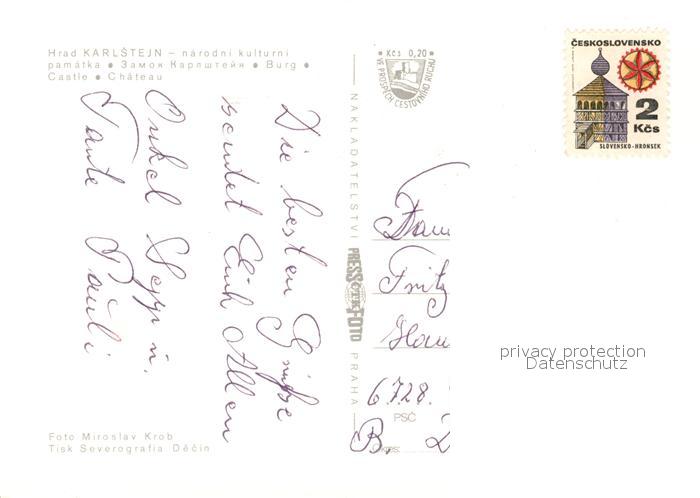 Hrad KARLŠTEJN – národní kulturní
památka ● Замок Карлштейн ● Burg ●
Castle ● Château
Die besten Grüße
sendet Euch Allen
Onkel Sepp u.
Tante Pauli
Foto Miroslav Krob
Tisk Severografia Děčín
NAKLADATELSTVÍ PRESSFOTO PRAHA
ČTK
Kčs 0,20
VE PROSPĚCH CESTOVNÍHO RUCHU
ČESKOSLOVENSKO
2
Kčs
SLOVENSKO-HRONSEK
Fam
Fritz
Hau
6728
PSČ
B.
privacy protection
Datenschutz